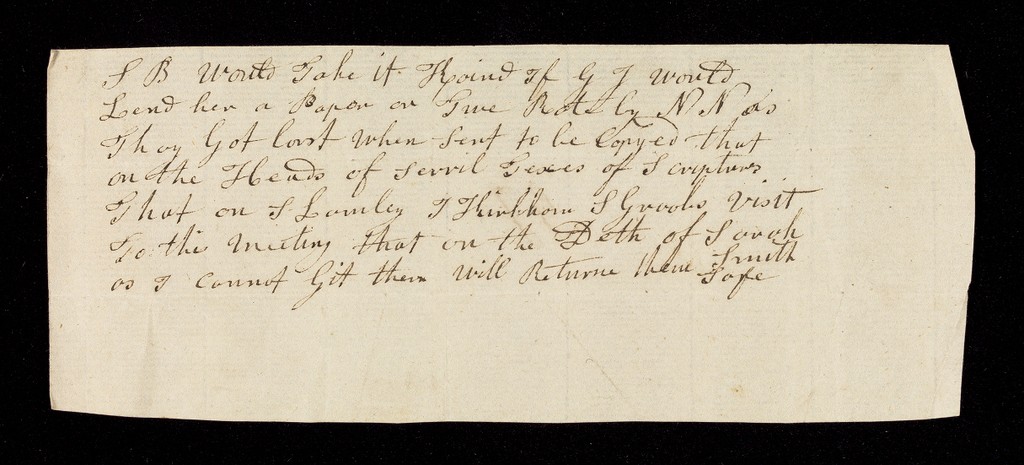 S B Would Take it Koind If G J would
Lend her a Paper or Twe Rote by N N as
Thay Got Lorst When Sent to be Copyed that
on the Heads of Serril Texes of Scripturs
That on S Lamley T Kirkham S Grooks Visit
To the Meeting that on the Deth of Sarah Smith
as I cannot Git them Will Returne them Safe